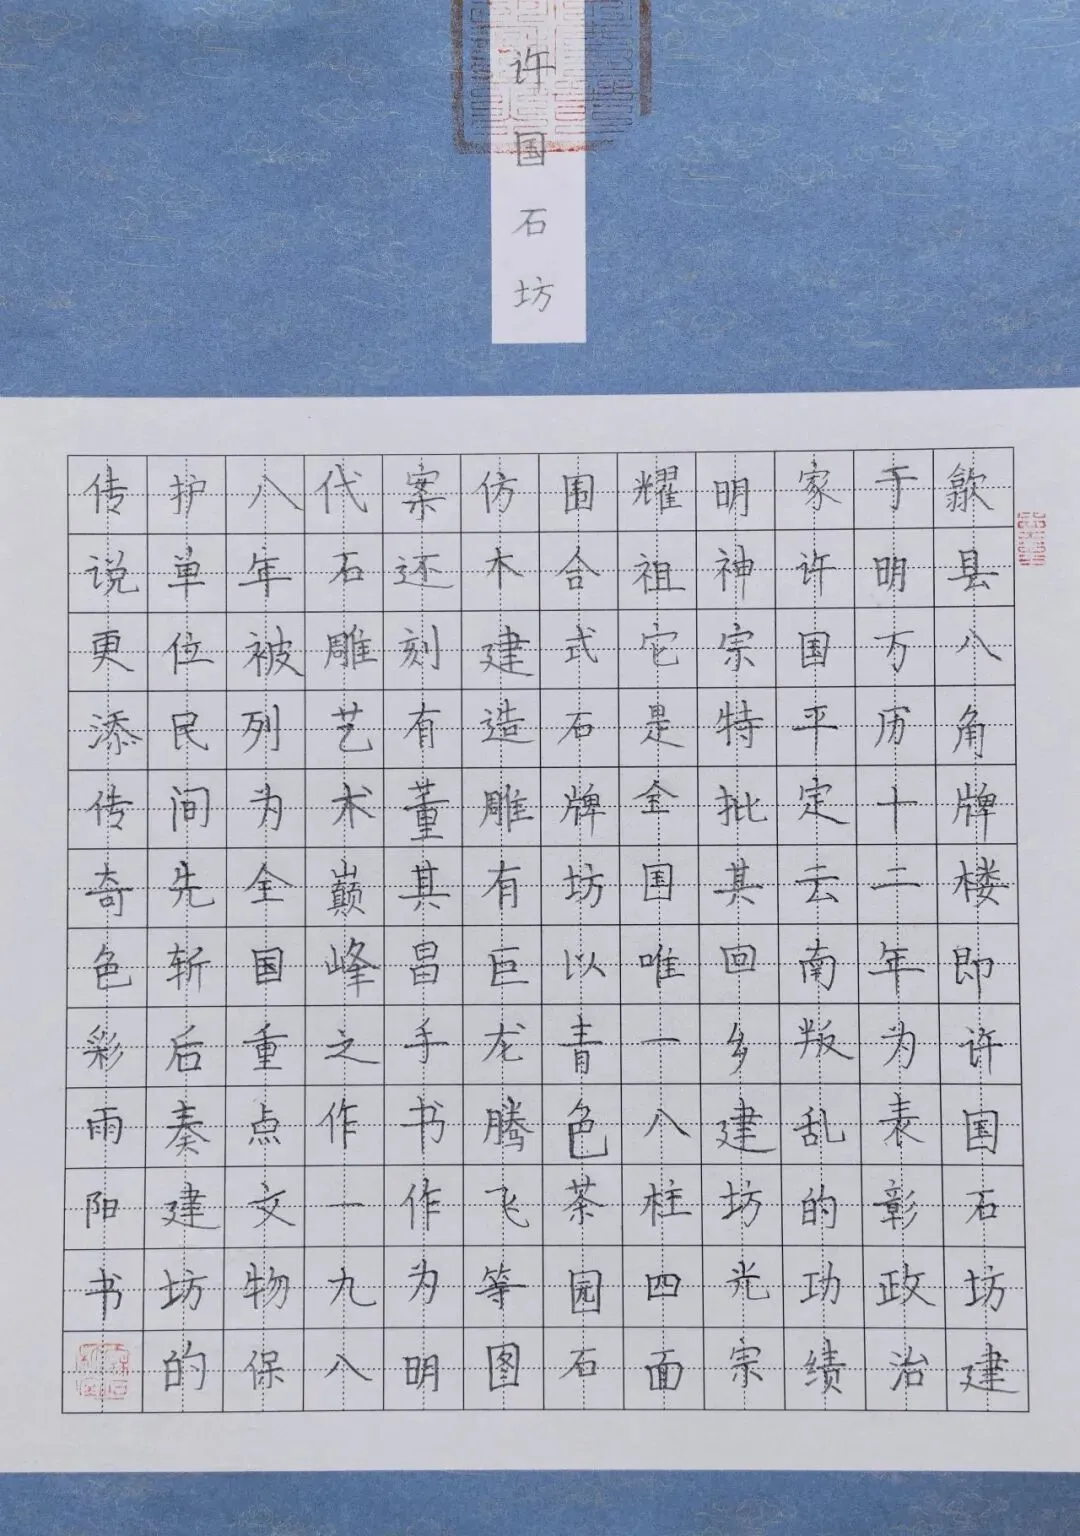 许国石坊
歙县八角牌楼即许国石坊建
于明万历十二年为表彰政治
家许国平定云南叛乱的功绩
明神宗特批其回乡建坊光宗
耀祖它是全国唯一八柱四面
围合式石牌坊以青色茶园石
仿木建造雕有巨龙腾飞等图
案还刻有董其昌手书作为明
代石雕艺术巅峰之作一九八
八年被列为全国重点文物保
护单位民间先斩后奏建坊的
传说更添传奇色彩雨阳书